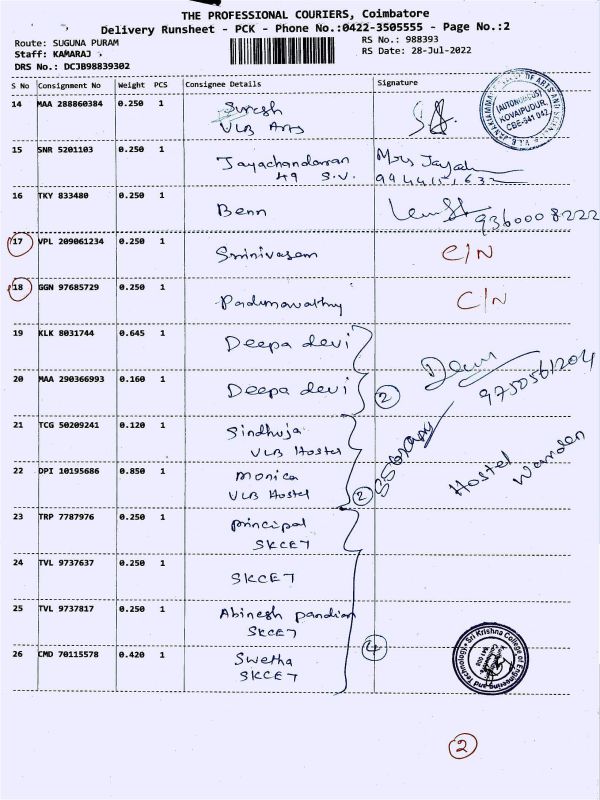 THE PROFESSIONAL COURIERS, Coimbatore
Delivery Runsheet - PCK - Phone No.:0422-3505555 - Page No.:2
Route: SUGUNA PURAM
RS No.: 988393
Staff: KAMARAJ .
RS Date: 28-Jul-2022
DRS No.: DCJB98839302
S No Consignment No Weight PCS Consignee Details Signature
14 MAA 288860384 0.250 1 Suresh
VLB Arts
(AUTONOMOUS)
KOVAIPUDUR,
CBE-641 042
15 SNR 5201103 0.250 1 Jayachandarran
49 S.V.
16 TKY 833480 0.250 1 Benn 9360008222
17 VPL 209061234 0.250 1 Srinivasan C/N
18 GGN 97685729 0.250 1 Padmavathy C/N
19 KLK 8031744 0.645 1 Deepa devi
20 MAA 290366993 0.160 1 Deepa devi 2 9750561204
21 TCG 50209241 0.120 1 Sindhuja
VLB Hostel
22 DPI 10195686 0.850 1 Monica
VLB Hostel 2
Hostel
Warden
23 TRP 7787976 0.250 1 principal
SKCET
24 TVL 9737637 0.250 1 SKCET
25 TVL 9737817 0.250 1 Abinesh pandian
SKCET
26 CMD 70115578 0.420 1 Swetha
SKCET 4
Sri Krishna College of Engineering and Technology
2